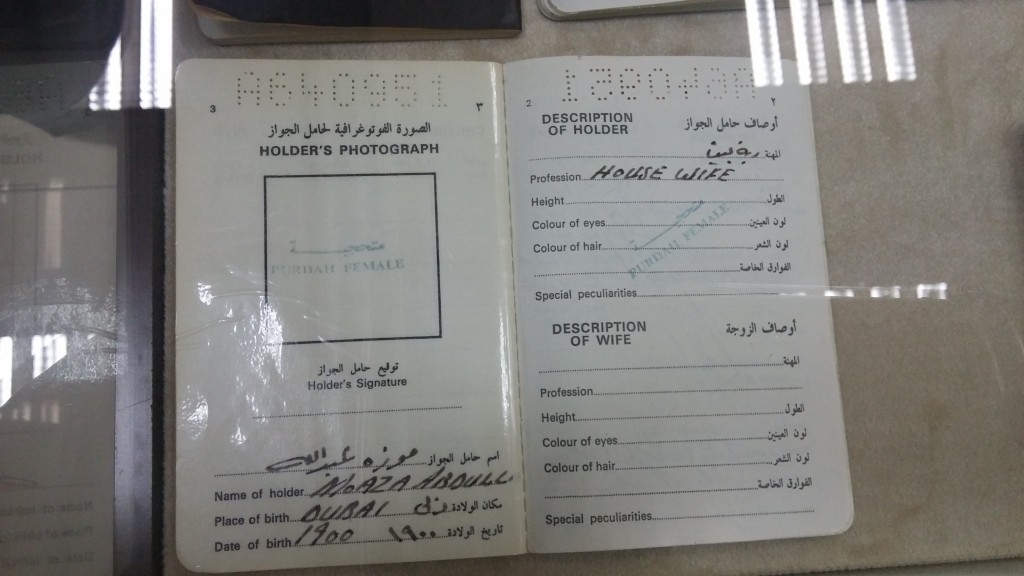 A640951
3 ٣
الصورة الفوتوغرافية لحامل الجواز
HOLDER'S PHOTOGRAPH
متحجبة
PURDAH FEMALE
توقيع حامل الجواز
Holder's Signature
اسم حامل الجواز موزه عبدالله
Name of holder MOAZA ABDULL
Place of birth DUBAI دبي مكان الولادة
Date of birth 1900 ١٩٠٠ تاريخ الولادة
2 ٢
DESCRIPTION أوصاف حامل الجواز
OF HOLDER
المهنة ربة بيت
Profession HOUSE WIFE
Height الطول
Colour of eyes لون العينين
Colour of hair لون الشعر
متحجبة
PURDAH FEMALE
الفوارق الخاصة
Special peculiarities
DESCRIPTION أوصاف الزوجة
OF WIFE
المهنة
Profession
Height الطول
Colour of eyes لون العينين
Colour of hair لون الشعر
الفوارق الخاصة
Special peculiarities